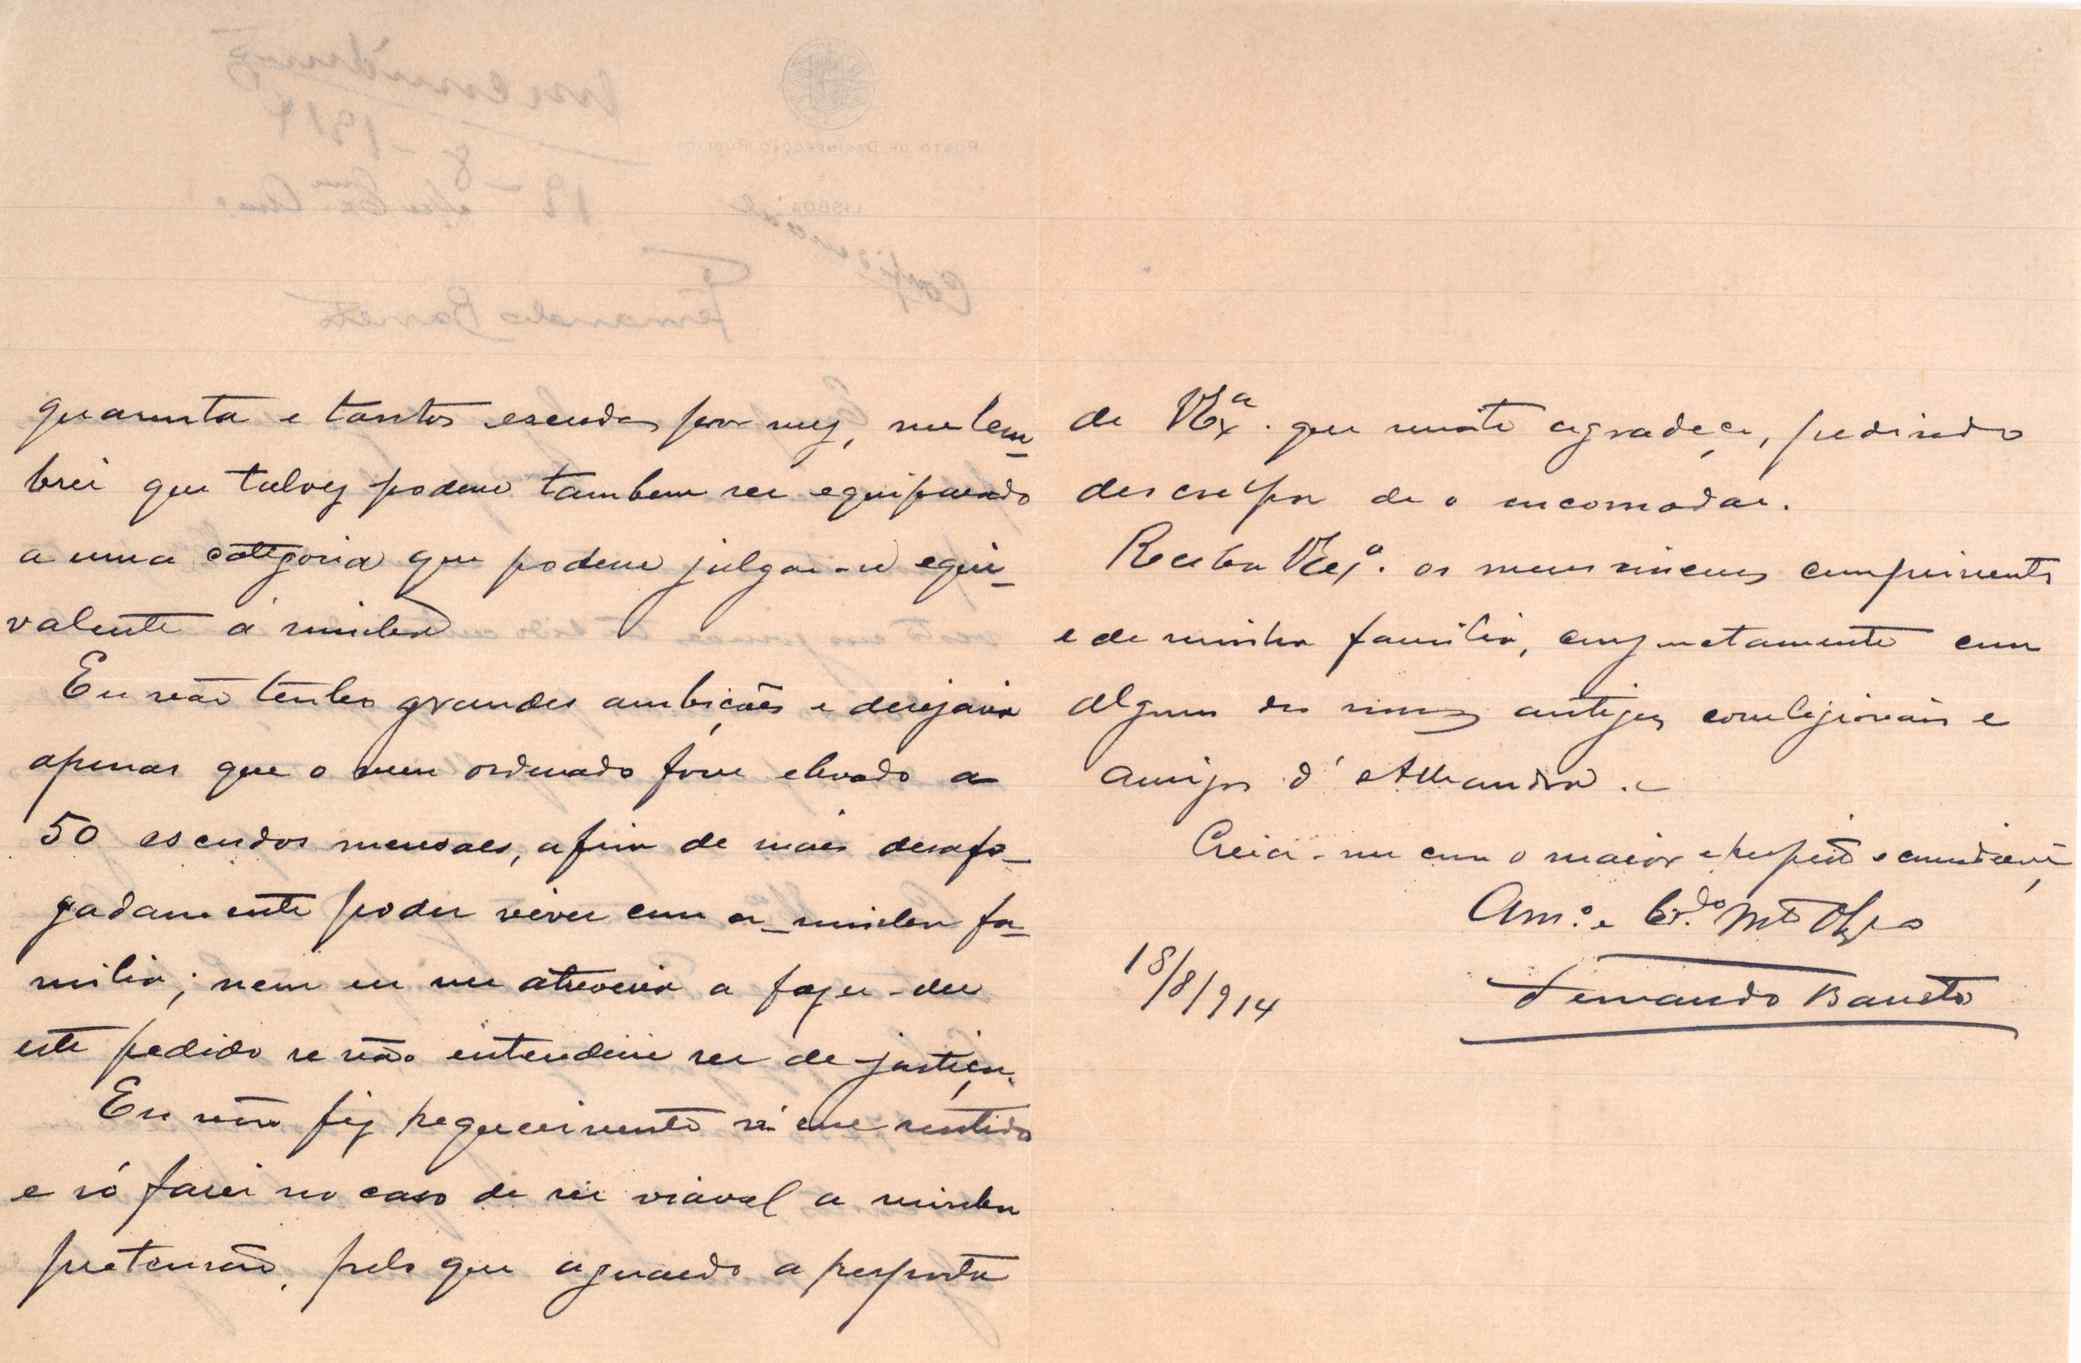 quarenta e tantos escudos por mez, me lem-
brei que talvez podesse tambem ser equiparado
a uma categoria que podesse julgar-se equi-
valente á minha
Eu não tenho grandes ambições e desejaria
apenas que o meu ordenado fosse elevado a
50 escudos mensaes, afim de mais desafo-
gadamente poder viver com a minha fa-
milia; nem eu me atreveria a fazer-lhe
este pedido se não entendesse ser de justiça.
Eu não fiz requerimento n'esse sentido
e só farei no caso de ser viavel a minha
pretensão, pelo que aguardo a resposta
de V.Ex.ª que muito agradeço, pedindo
desculpa de o encomodar.
Receba V.Ex.ª os meus sinceros cumprimentos
e de minha familia, conjuntamente com
alguns dos meus antigos correligionarios e
amigos d'Alhandra.
Creia-me com o maior respeito e consideração
Am.º e Cr.do Mto Obgdo
18/8/914
Fernando Barreto
POSTO DE DESINFECÇÃO PUBLICA
LISBOA
Confidencial
Fernando Barreto